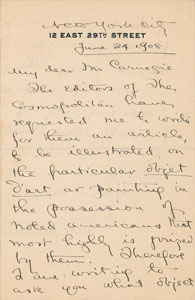 New York City
12 EAST 29TH STREET
June 24 1908.
My dear Mr Carnegie
The Editors of The
Cosmopolitan have
requested me to write
for them an article,
to be illustrated on
the particular objet
d'art or painting in
the possession of
noted americans that
most highly is prized
by them. Therefore
I am writing to
ask you what object